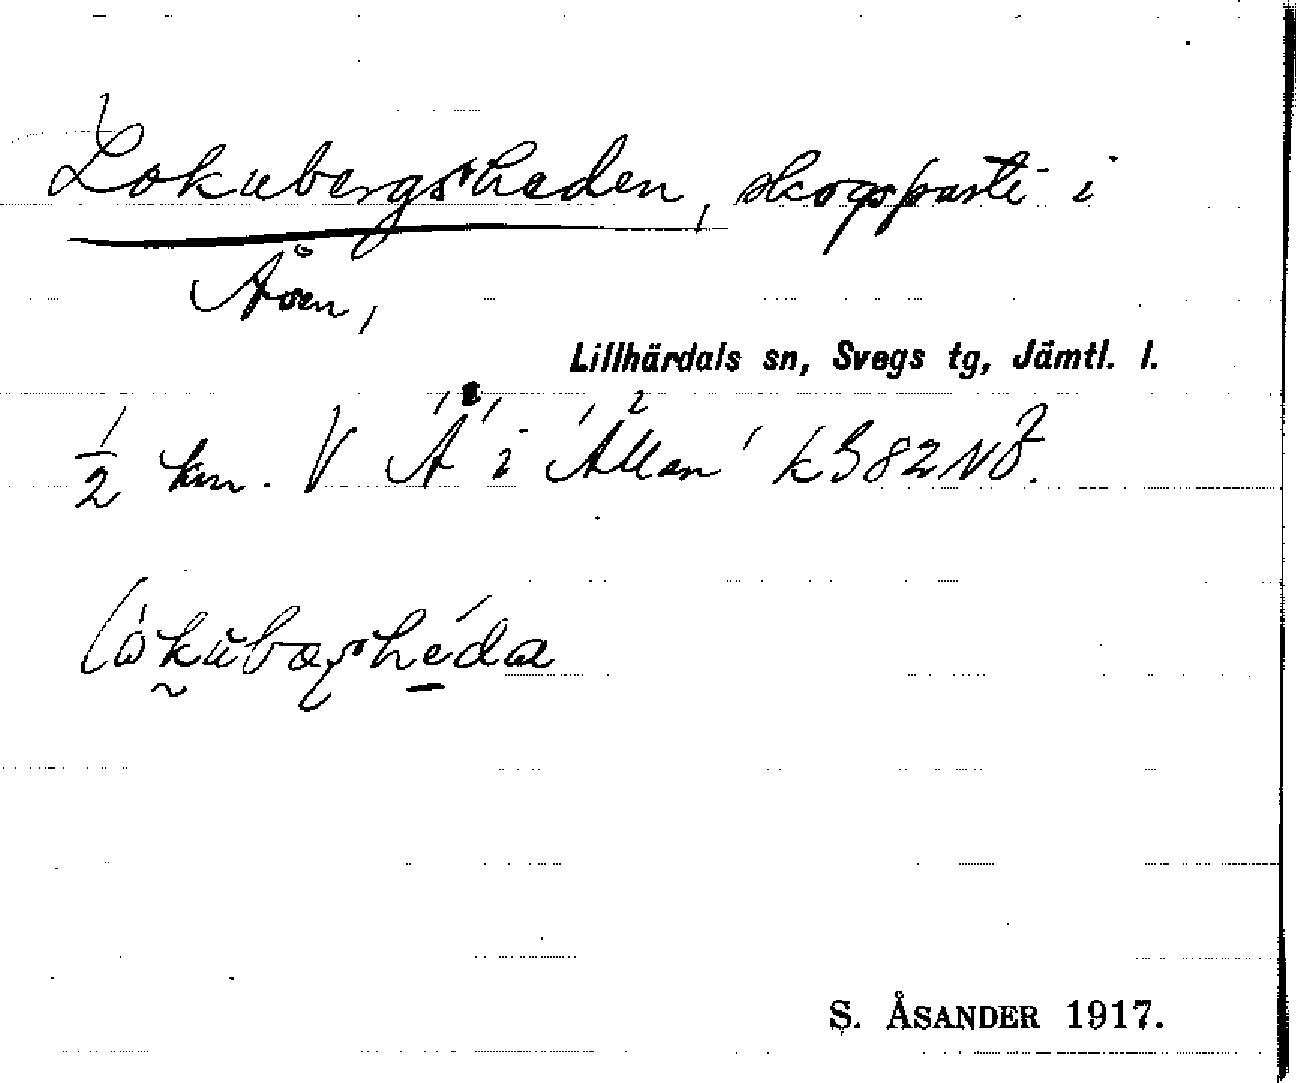 Lokubergsheden, skogsparti i
Åsen,
Lillhärdals sn, Svegs tg, Jämtl. l.
1/2 km. V 'Å' i 'Ållen' k382NÖ.
S. ÅSANDER 1917.